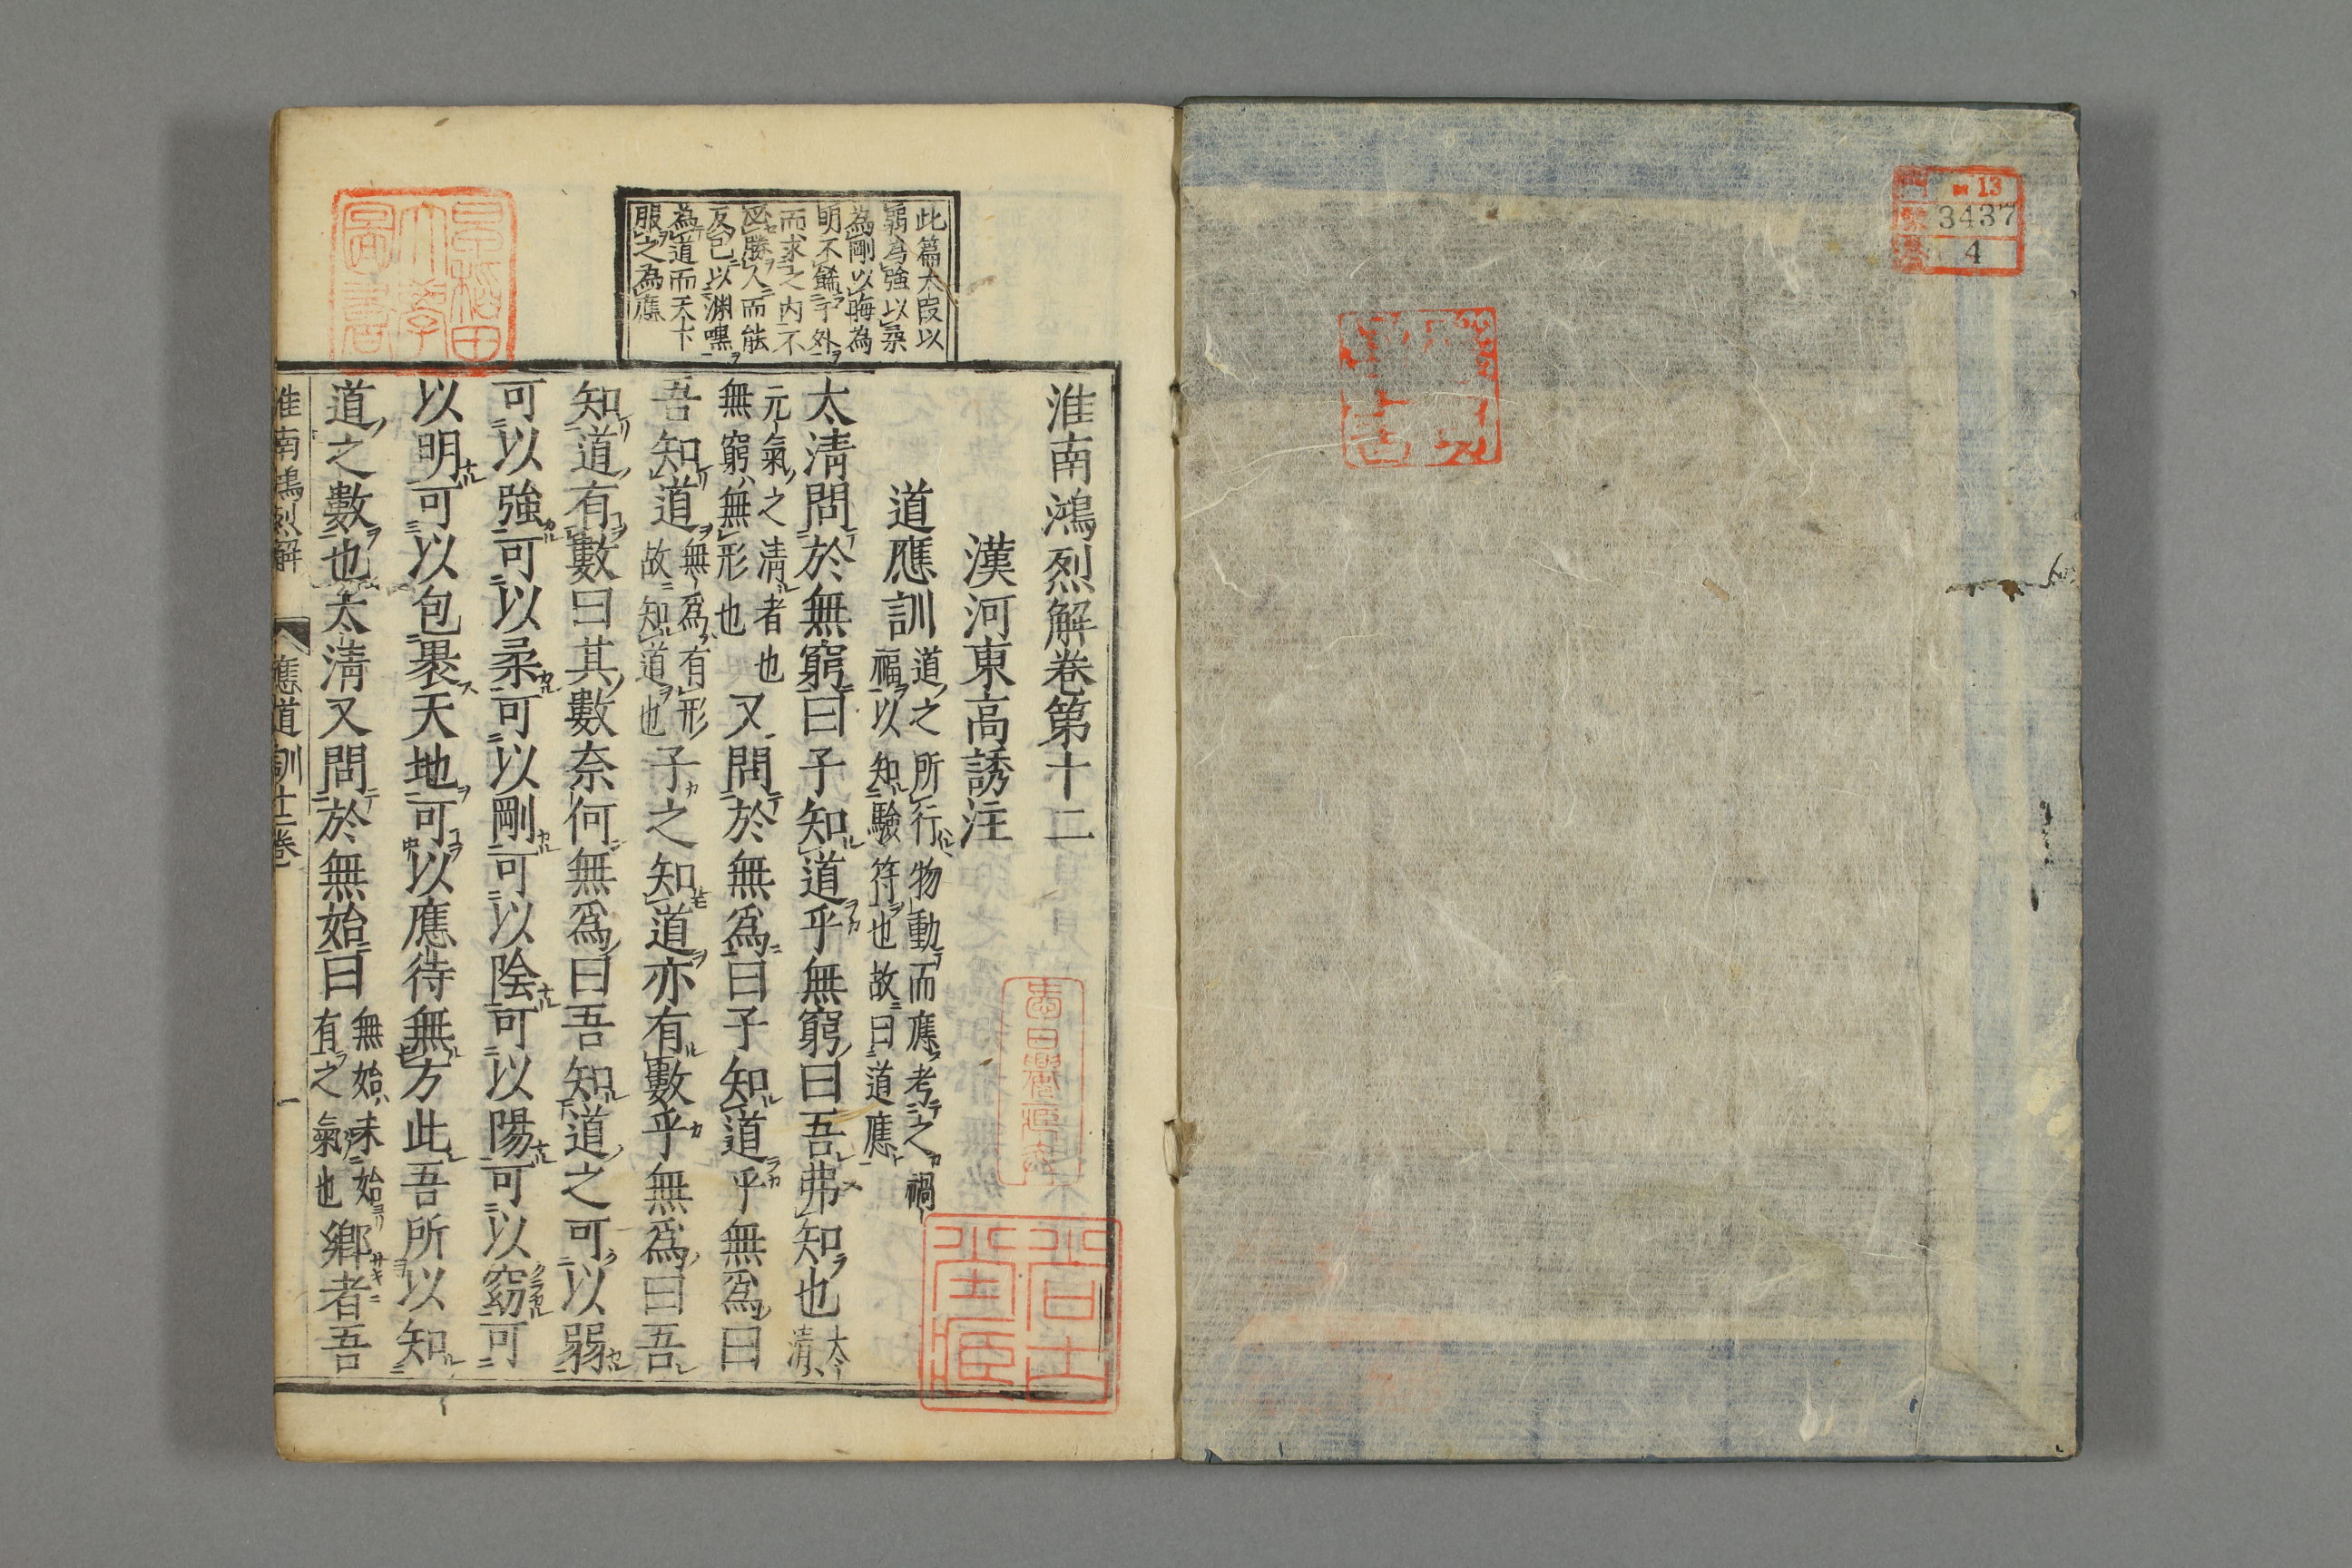 13
3437
4
淮南鴻烈解卷第十二
漢河東高誘注
道應訓 道之所行物動而應考之禍
福以知驗符也故曰道應
太清問於無窮曰子知道乎無窮曰吾弗知也 太清
元氣之清者也
無窮無形也
又問於無爲曰子知道乎無爲曰
吾知道 無爲有形
故知道也
子之知道亦有數乎無爲曰吾
知道有數曰其數奈何無爲曰吾知道之可以弱
可以強可以柔可以剛可以陰可以陽可以窈可
以明可以包裹天地可以應待無方此吾所以知
道之數也太清又問於無始曰 無始未始
有之氣也
鄉者吾
此篇大叚以
弱為強以柔
為剛以晦為
明不䰟于外
而求之内不
必勝人而能
反已以渊嘿
為道而天下
服之為應
淮南鴻烈解 應道訓十二卷 一
早稻田
大學
圖書